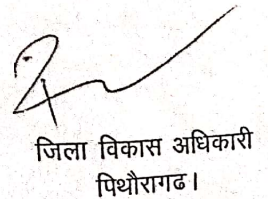 जिला विकास अधिकारी
पिथौरागढ।